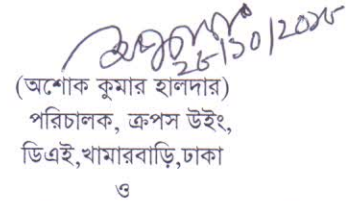 ২৮/১০/২০১৮
(অশোক কুমার হালদার)
পরিচালক, ক্রপস উইং,
ডিএই,খামারবাড়ি,ঢাকা
ও